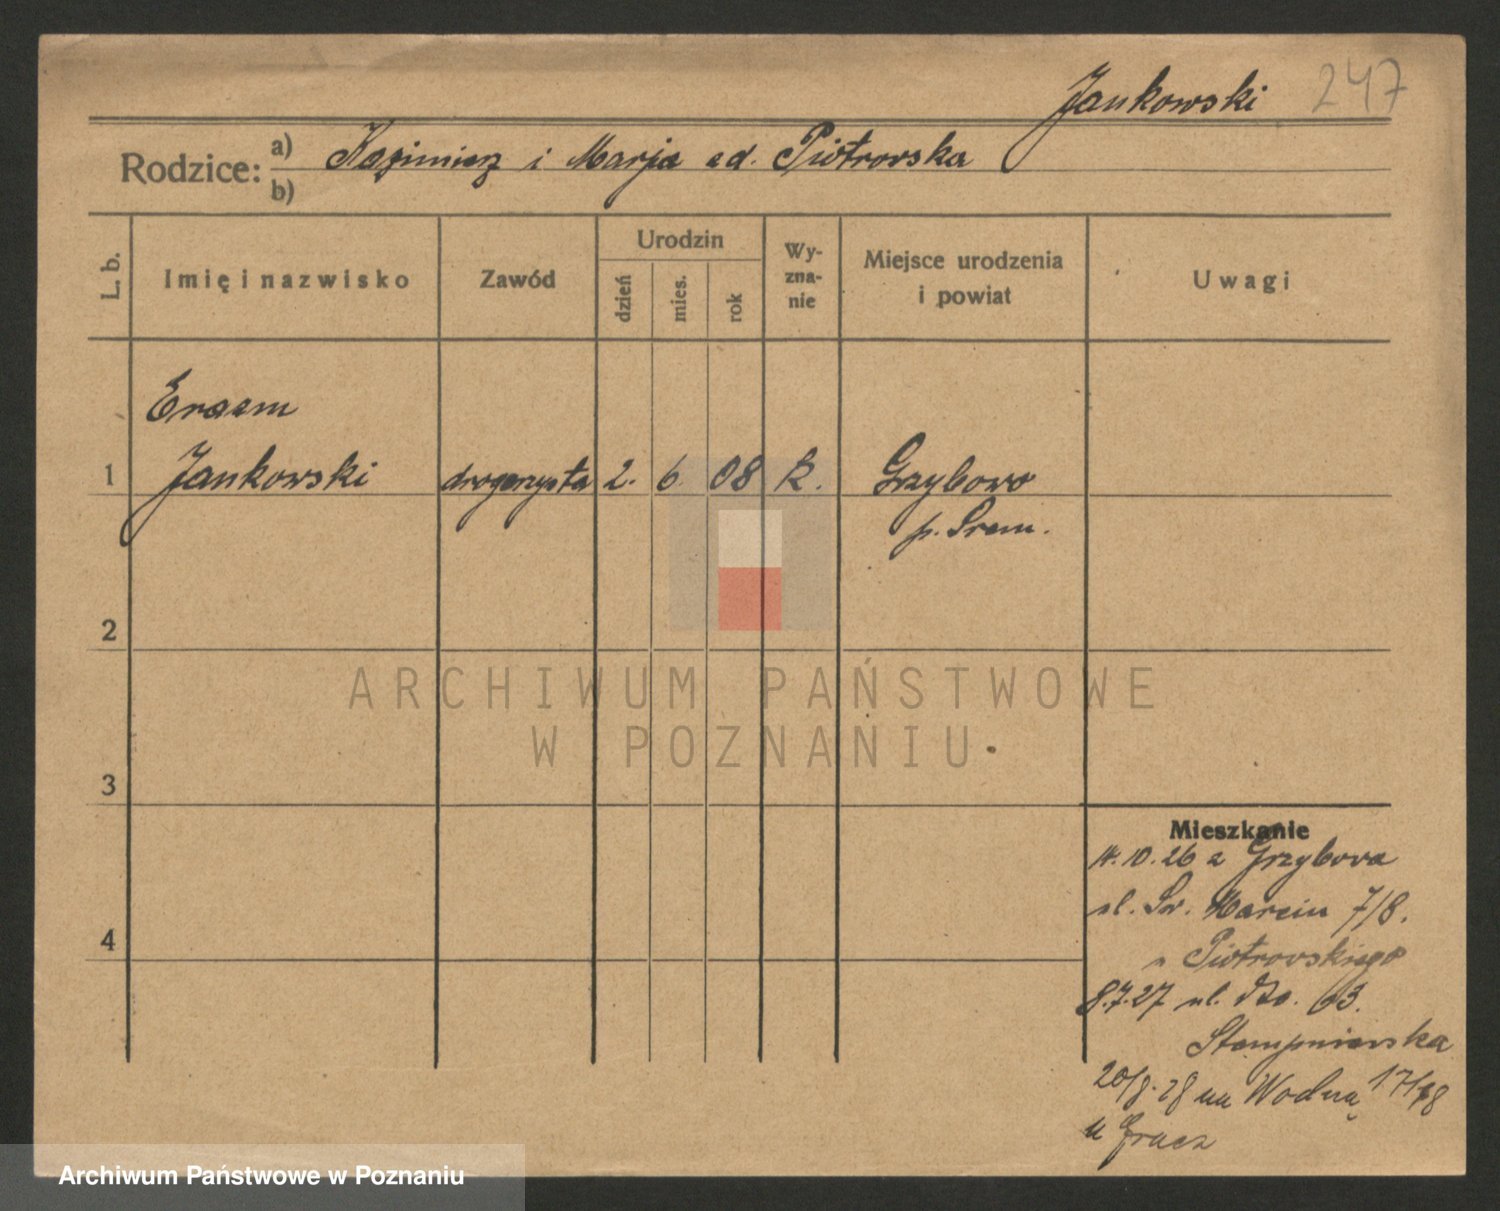 Jankowski 247
Rodzice: a) Kazimierz i Marja zd. Piotrowska
b)
L. b. Imię i nazwisko Zawód Urodzin dzień mies. rok Wy-zna-nie Miejsce urodzenia i powiat Uwagi
Erazm
1 Jankowski drogerzysta 2. 6. 08 k. Grzybowo
p. Śrem.
2
ARCHIWUM PAŃSTWOWE
W POZNANIU
3
Mieszkanie
14.10.26 z Grzybowa
ul. Św. Marcin 7/8.
4
u Piotrowskiego
8.7.27 ul. 63.
Stempniewska
na Wodną 17/18
u
Archiwum Państwowe w Poznaniu